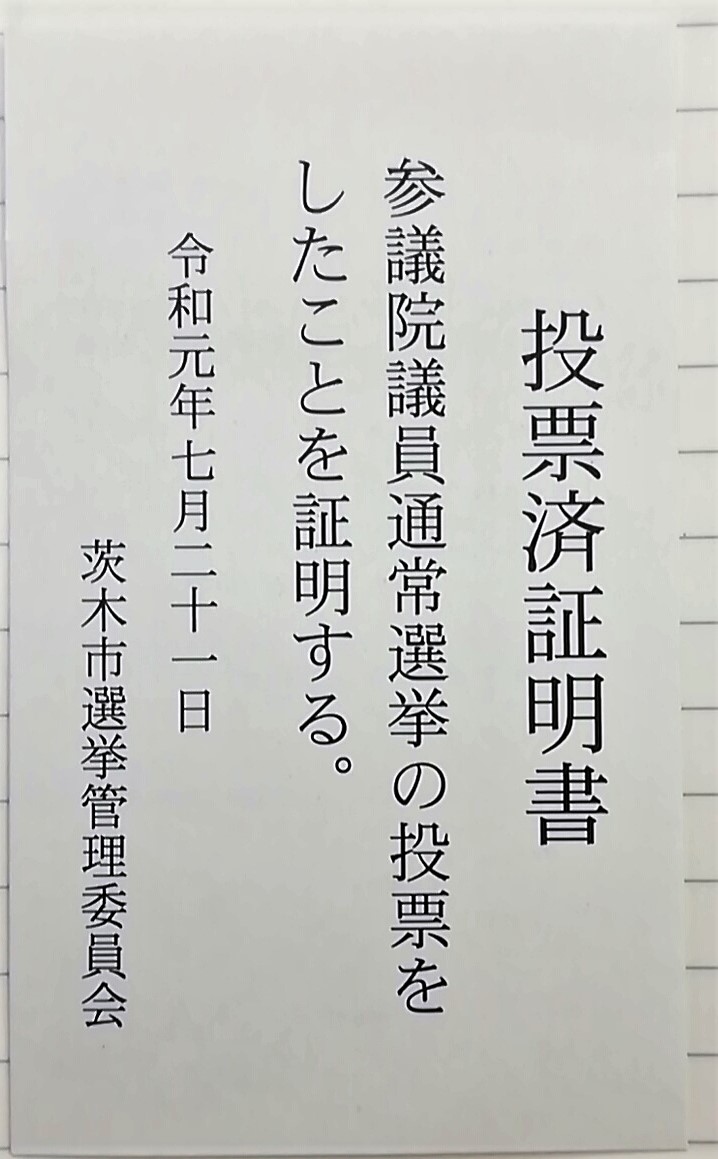 投票済証明書
参議院議員通常選挙の投票を
したことを証明する。
令和元年七月二十一日
茨木市選挙管理委員会